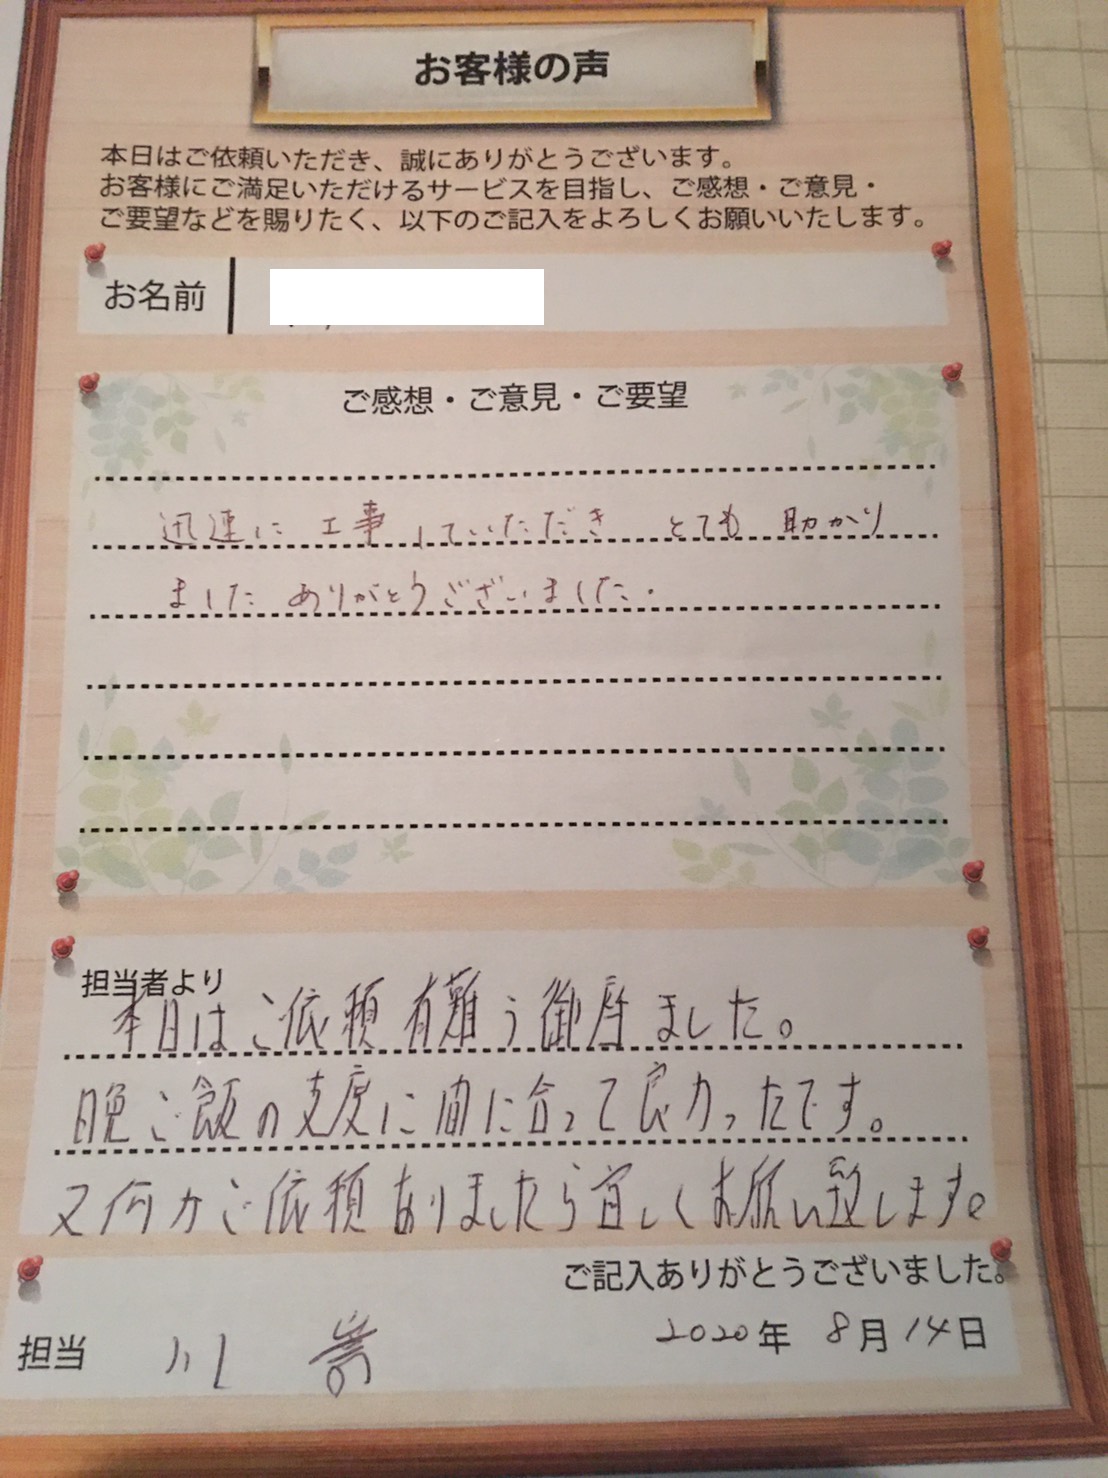 お客様の声
本日はご依頼いただき、誠にありがとうございます。
お客様にご満足いただけるサービスを目指し、ご感想・ご意見・
ご要望などを賜りたく、以下のご記入をよろしくお願いいたします。
お名前
ご感想・ご意見・ご要望
迅速に 工事していただき とても 助かり
ました ありがとうございました.
担当者より
本日はご依頼有難う御座ました。
晩ご飯の支度に間に合って良かったです。
又何かご依頼ありましたら宜しくお願い致します。
ご記入ありがとうございました。
担当
2020年 8月14日